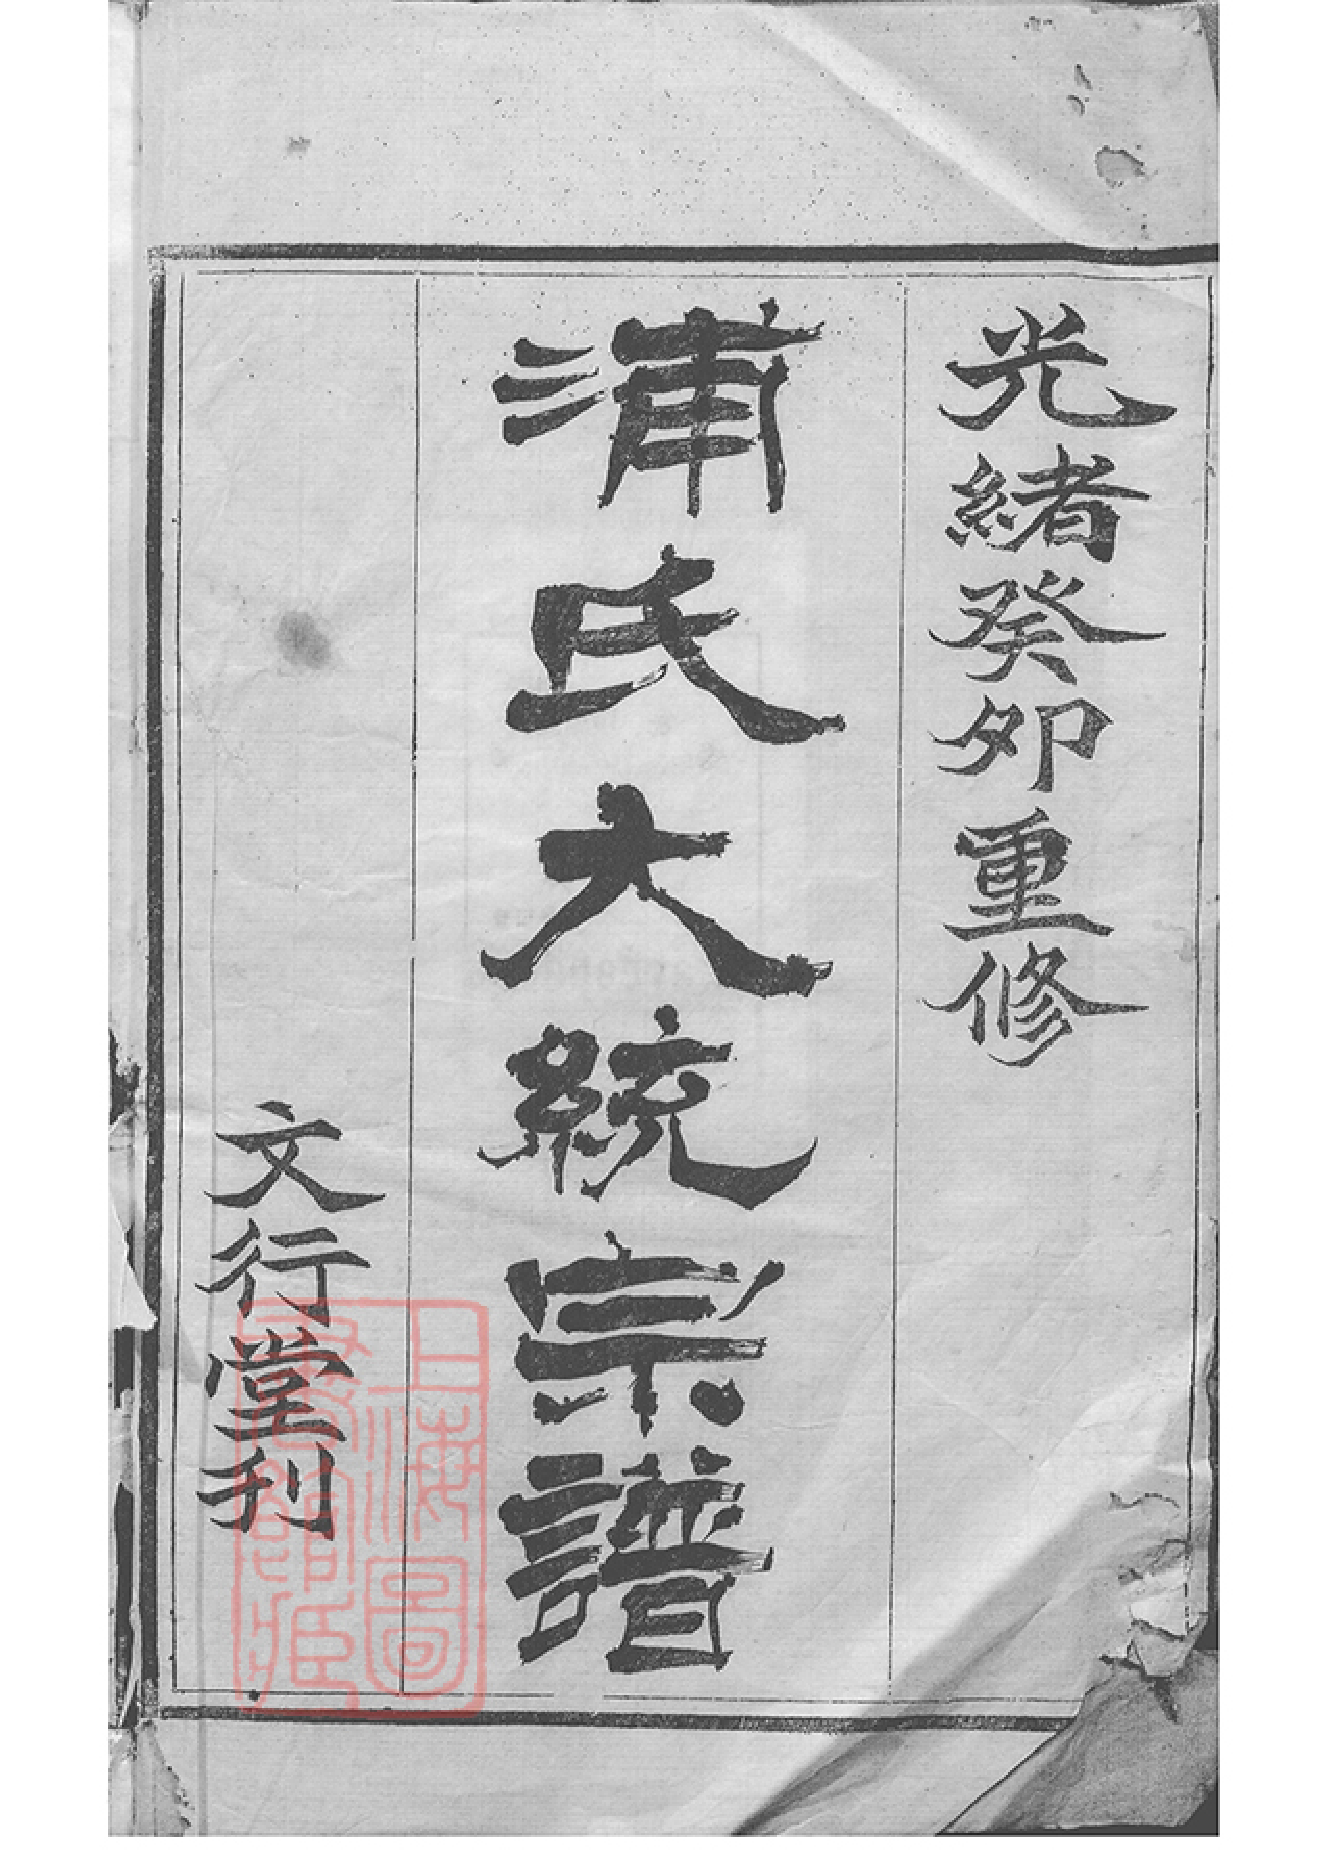 光緒癸卯重修
浦氏大統宗譜
文行堂刊
上海圖
書館藏